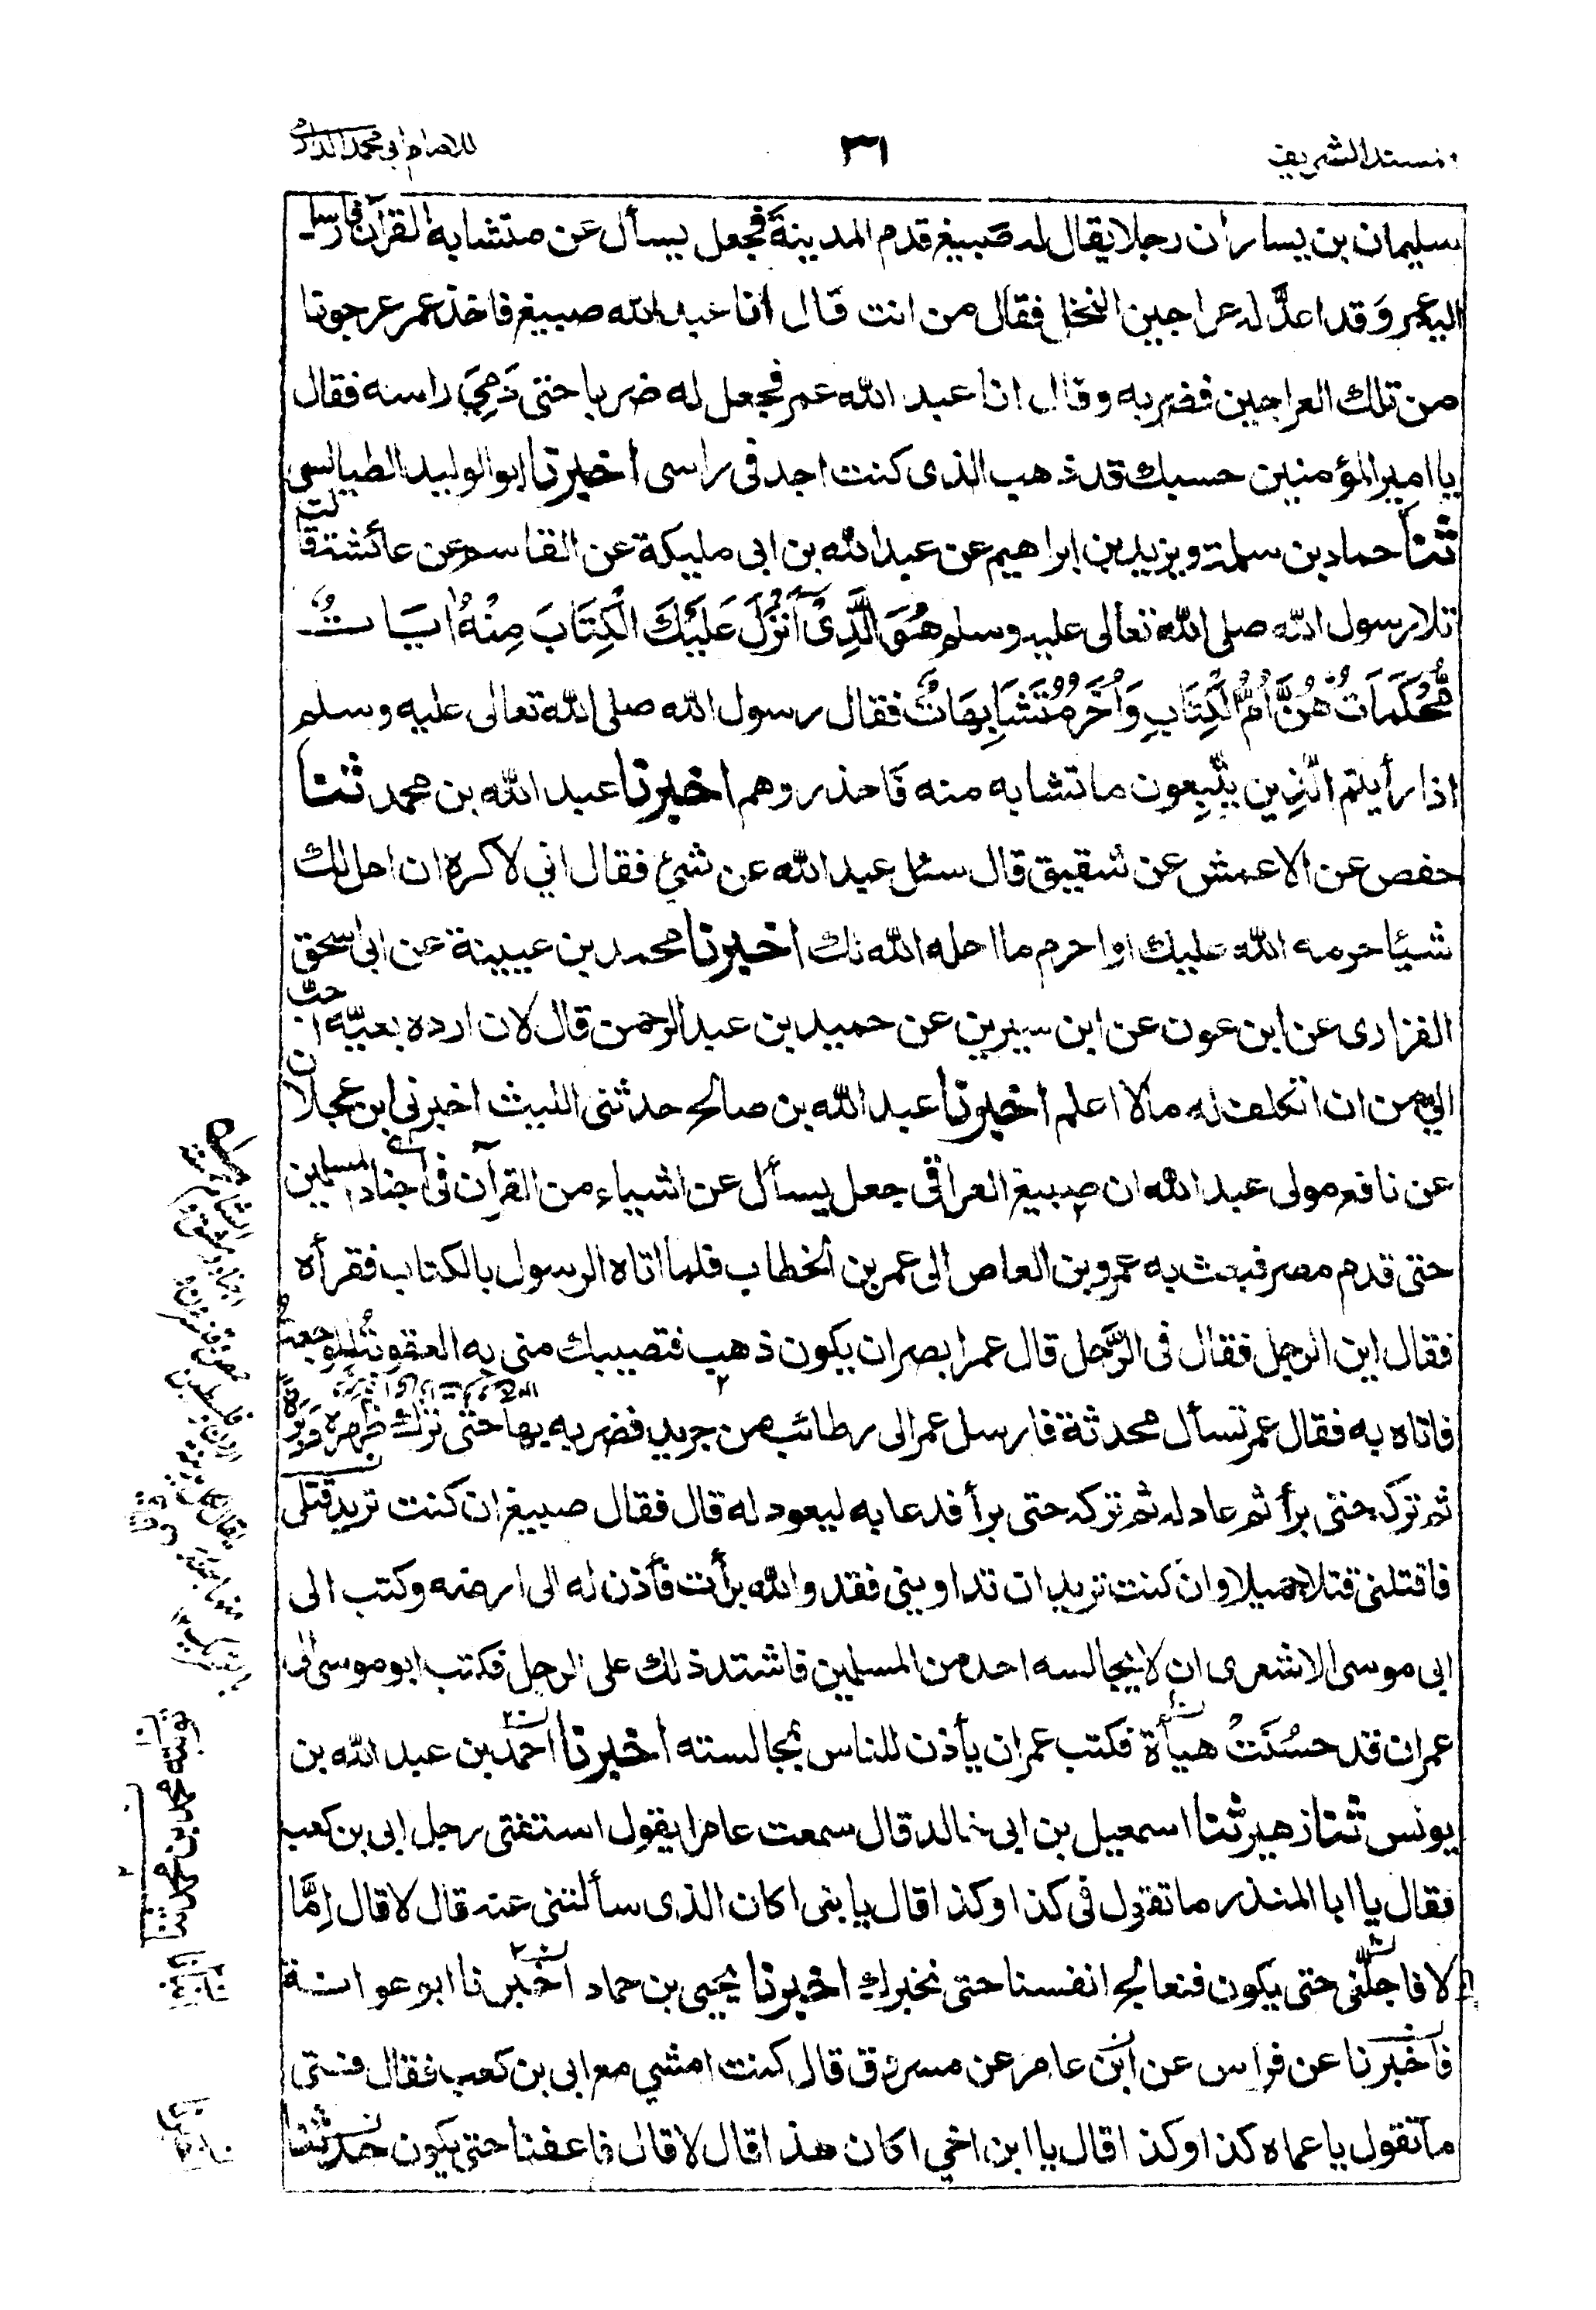 مسند الشريف
٣١
للامام ابي محمد الدارمي
سليمان بن يسار ان رجلا يقال له صَبيغ قدم المدينةَ فجعل يسأل عن متشابه القرآن فارسل
اليه عمر وَقد اعدَّ له عراجين النخل فقال من انت قال أنا عبد الله صبيغ فاخذ عمر عرجونا
من تلك العراجين فضربه وقال انا عبد الله عمر فجعل له ضربا حتى دَمِيَ راسه فقال
يا امير المؤمنين حسبك قد ذهب الذى كنت اجد فى راسى اخبرنا ابو الوليد الطيالسى
ثنا حماد بن سلمة ويزيد بن ابراهيم عن عبد الله بن ابى مليكة عن القاسم عن عائشة قالت
تلا رسول الله صلى الله تعالى عليه وسلم هُوَ الَّذِىْ اَنْزَلَ عَلَيْكَ الْكِتَابَ مِنْهُ اٰيَاتٌ
مُّحْكَمَاتٌ هُنَّ اُمُّ الْكِتَابِ وَاُخَرُ مُتَشَابِهَاتٌ فقال رسول الله صلى الله تعالى عليه وسلم
اذا رأيتم الَّذِين يتَّبِعون ما تشابه منه فَاحذروهم اخبرنا عبد الله بن محمد ثنا
حفص عن الاعمش عن شقيق قال سئل عبد الله عن شئ فقال اني لاكره ان احل لك
شيئا حرمه الله عليك او احرم ما احله الله لك اخبرنا محمد بن عيينة عن ابى اسحق
الفزارى عن ابن عون عن ابن سيرين عن حميد بن عبد الرحمن قال لان ارده بعيّه احبّ
الي من ان اتكلف له مالا اعلم اخبرنا عبد الله بن صالح حدثنى الليث اخبرنى ابن عجلان
عن نافع مولى عبد الله ان صبيغ العراقى جعل يسأل عن اشياء من القرآن فى اجناد المسلمين
حتى قدم مصر فبعث به عمرو بن العاص الى عمر بن الخطاب فلما اتاه الرسول بالكتاب فقرأه
فقال اين الرجل فقال فى الرَّحل قال عمر ابصر ان يكون ذهب فتصيبك منى به العقوبة الموجعة
فاتاه به فقال عمر تسأل محدثة فارسل عمر الى رطائب من جريد فضربه بها حتى ترك ظهره دَبَرة
ثم تركه حتى برأ ثم عاد له ثم تركه حتى برأ فدعا به ليعود له قال فقال صبيغ ان كنت تريد قتلى
فاقتلنى قتلا جميلا وان كنت تريد ان تداوينى فقد والله برأت فأذن له الى ارضه وكتب الى
ابى موسى الاشعرى ان لا يجالسه احد من المسلمين فاشتد ذلك على الرجل فكتب ابو موسى الى
عمر ان قد حسُنَتْ هيأة فكتب عمر ان يأذن للناس بمجالسته اخبرنا احمد بن عبد الله بن
يونس ثنا زهير ثنا اسمعيل بن ابى خالد قال سمعت عامرا يقول استفتى رجل ابى بن كعب
فقال يا ابا المنذر ما تقول فى كذا وكذا قال يا بنى اكان الذى سألتنى عنه قال لا قال اِمَّا
لا فاجلّنى حتى يكون فنعالج انفسنا حتى نخبرك اخبرنا يحيى بن حماد اخبرنا ابو عوانة
فاخبرنا عن فراس عن ابن عامر عن مسروق قال كنت امشي مع ابى بن كعب فقال فتى
ما تقول يا عماه كذا وكذا قال يا ابن اخي اكان هذا قال لا قال فاعفنا حتى يكون حدثنا